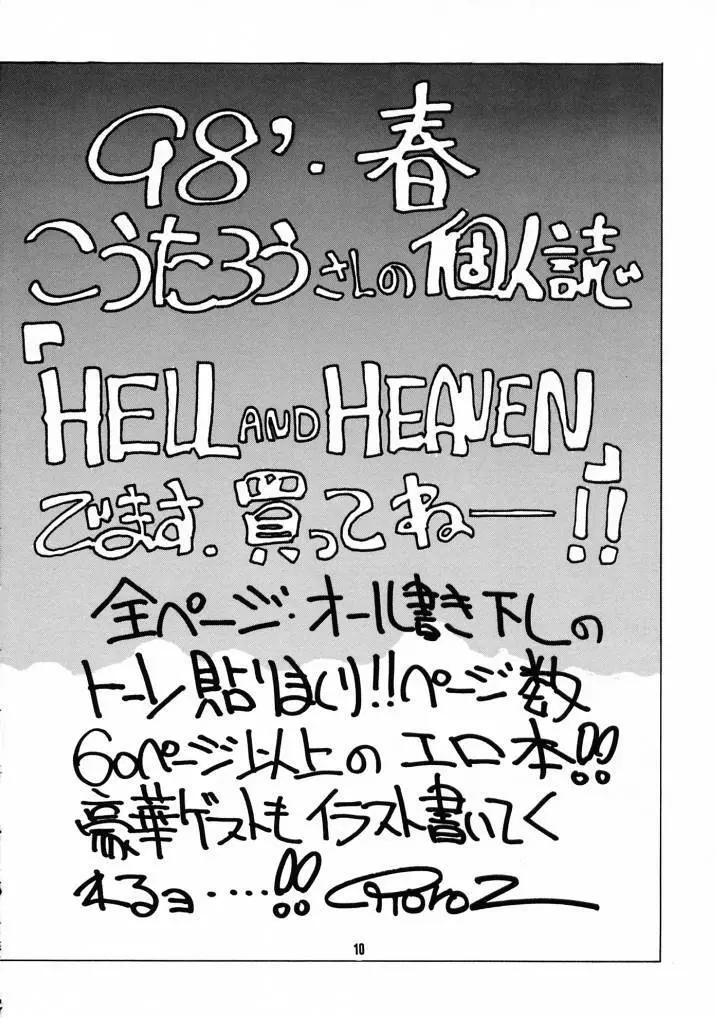 98'・春
こうたろうさんの個人誌
『HELL AND HEAVEN』
でます.買ってねー!!
全ページ・オール書き下しの
トーン貼りまくり!!ページ数
60ページ以上のエロ本!!
豪華ゲストもイラスト書いてく
れるョ‥‥!!
10